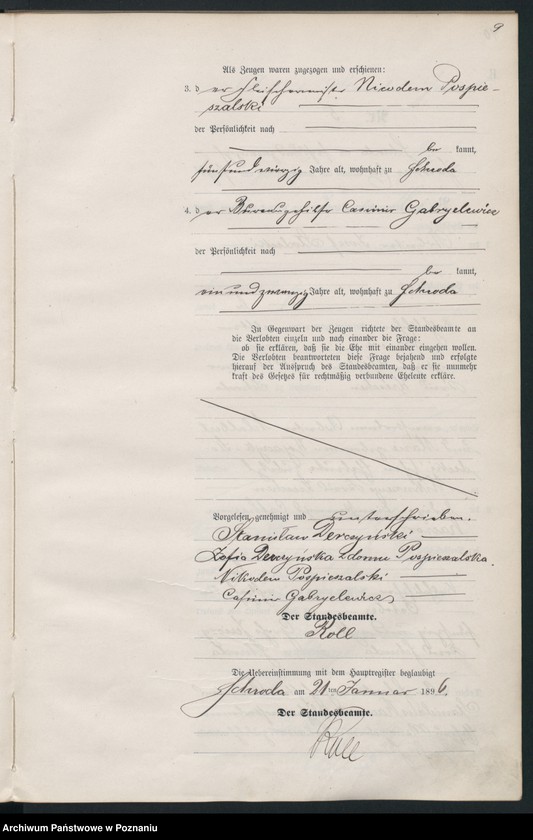 9
Als Zeugen waren zugezogen und erschienen:
3. der Fleischermeister Nicodem Pospie-
szalski
der Persönlichkeit nach
be kannt,
fünf und vierzig Jahre alt, wohnhaft zu Schroda
4. der Bureaugehilfe Casimir Gabryelewicz
der Persönlichkeit nach
be kannt,
ein und zwanzig Jahre alt, wohnhaft zu Schroda
In Gegenwart der Zeugen richtete der Standesbeamte an
die Verlobten einzeln und nach einander die Frage:
ob sie erklären, daß sie die Ehe mit einander eingehen wollen.
Die Verlobten beantworteten diese Frage bejahend und erfolgte
hierauf der Ausspruch des Standesbeamten, daß er sie nunmehr
kraft des Gesetzes für rechtmäßig verbundene Eheleute erkläre.
Vorgelesen, genehmigt und unterschrieben.
Stanisław Derczyński
Zofia Derczyńska z domu Pospieszalska.
Nikodem Pospieszalski
Casimir Gabryelewicz
Der Standesbeamte.
Roll
Die Uebereinstimmung mit dem Hauptregister beglaubigt
Schroda am 21ten Januar 1896.
Der Standesbeamte.
Roll
Archiwum Państwowe w Poznaniu